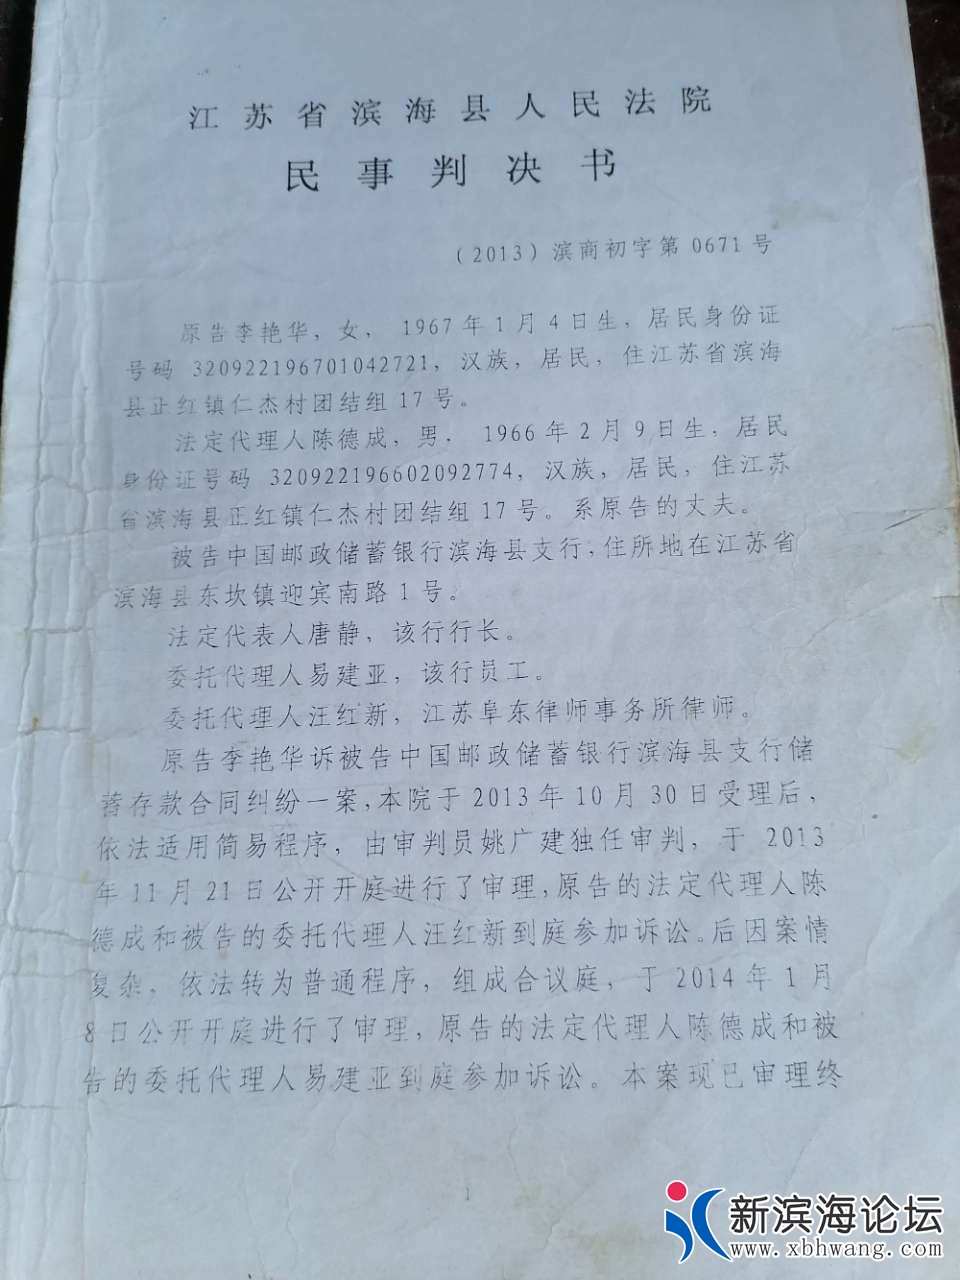 江苏省滨海县人民法院
民事判决书
(2013)滨商初字第0671号
原告李艳华，女，1967年1月4日生，居民身份证
号码320922196701042721，汉族，居民，住江苏省滨海
县正红镇仁杰村团结组17号。
法定代理人陈德成，男，1966年2月9日生，居民
身份证号码320922196602092774，汉族，居民，住江苏
省滨海县正红镇仁杰村团结组17号。系原告的丈夫。
被告中国邮政储蓄银行滨海县支行，住所地在江苏省
滨海县东坎镇迎宾南路1号。
法定代表人唐静，该行行长。
委托代理人易建亚，该行员工。
委托代理人汪红新，江苏阜东律师事务所律师。
原告李艳华诉被告中国邮政储蓄银行滨海县支行储
蓄存款合同纠纷一案，本院于2013年10月30日受理后，
依法适用简易程序，由审判员姚广建独任审判，于2013
年11月21日公开开庭进行了审理，原告的法定代理人陈
德成和被告的委托代理人汪红新到庭参加诉讼。后因案情
复杂，依法转为普通程序，组成合议庭，于2014年1月
8日公开开庭进行了审理，原告的法定代理人陈德成和被
告的委托代理人易建亚到庭参加诉讼。本案现已审理终
1
新滨海论坛
www.xbhwang.com